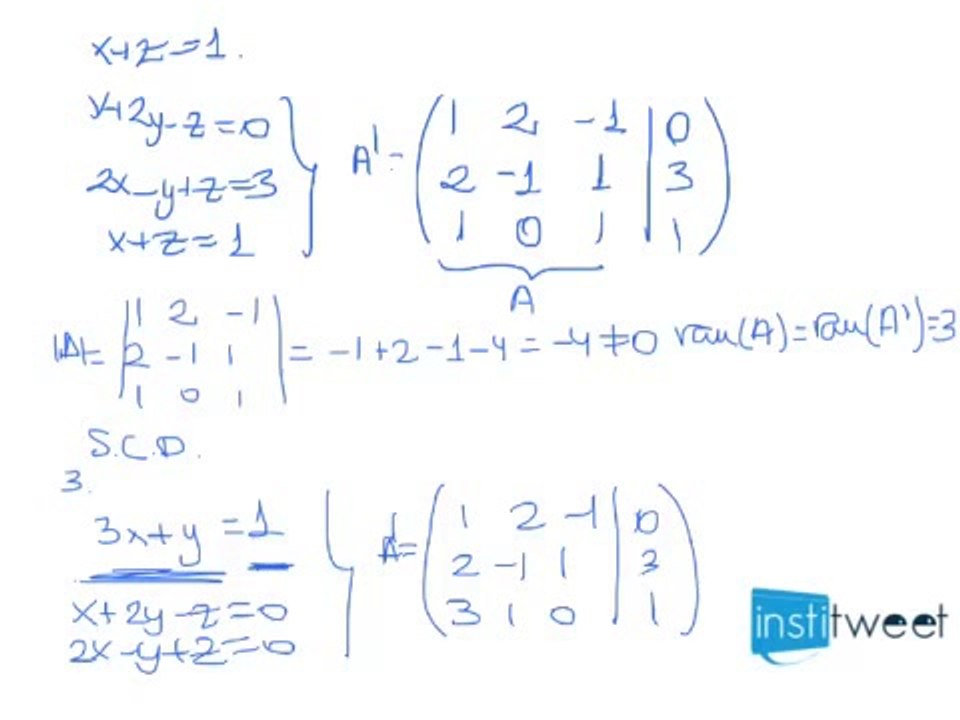 x+z=1.
x+2y-z=0
2x-y+z=3
x+z=1
A'= ( 1 2 -1 | 0
2 -1 1 | 3
1 0 1 | 1 )
A
|A|= | 1 2 -1
2 -1 1
1 0 1 | = -1+2-1-4 = -4≠0 ran(A)=ran(A')=3
S.C.D.
3.
3x+y=1
x+2y-z=0
2x-y+z=0
A'= ( 1 2 -1 | 0
2 -1 1 | 3
3 1 0 | 1 )
institweet